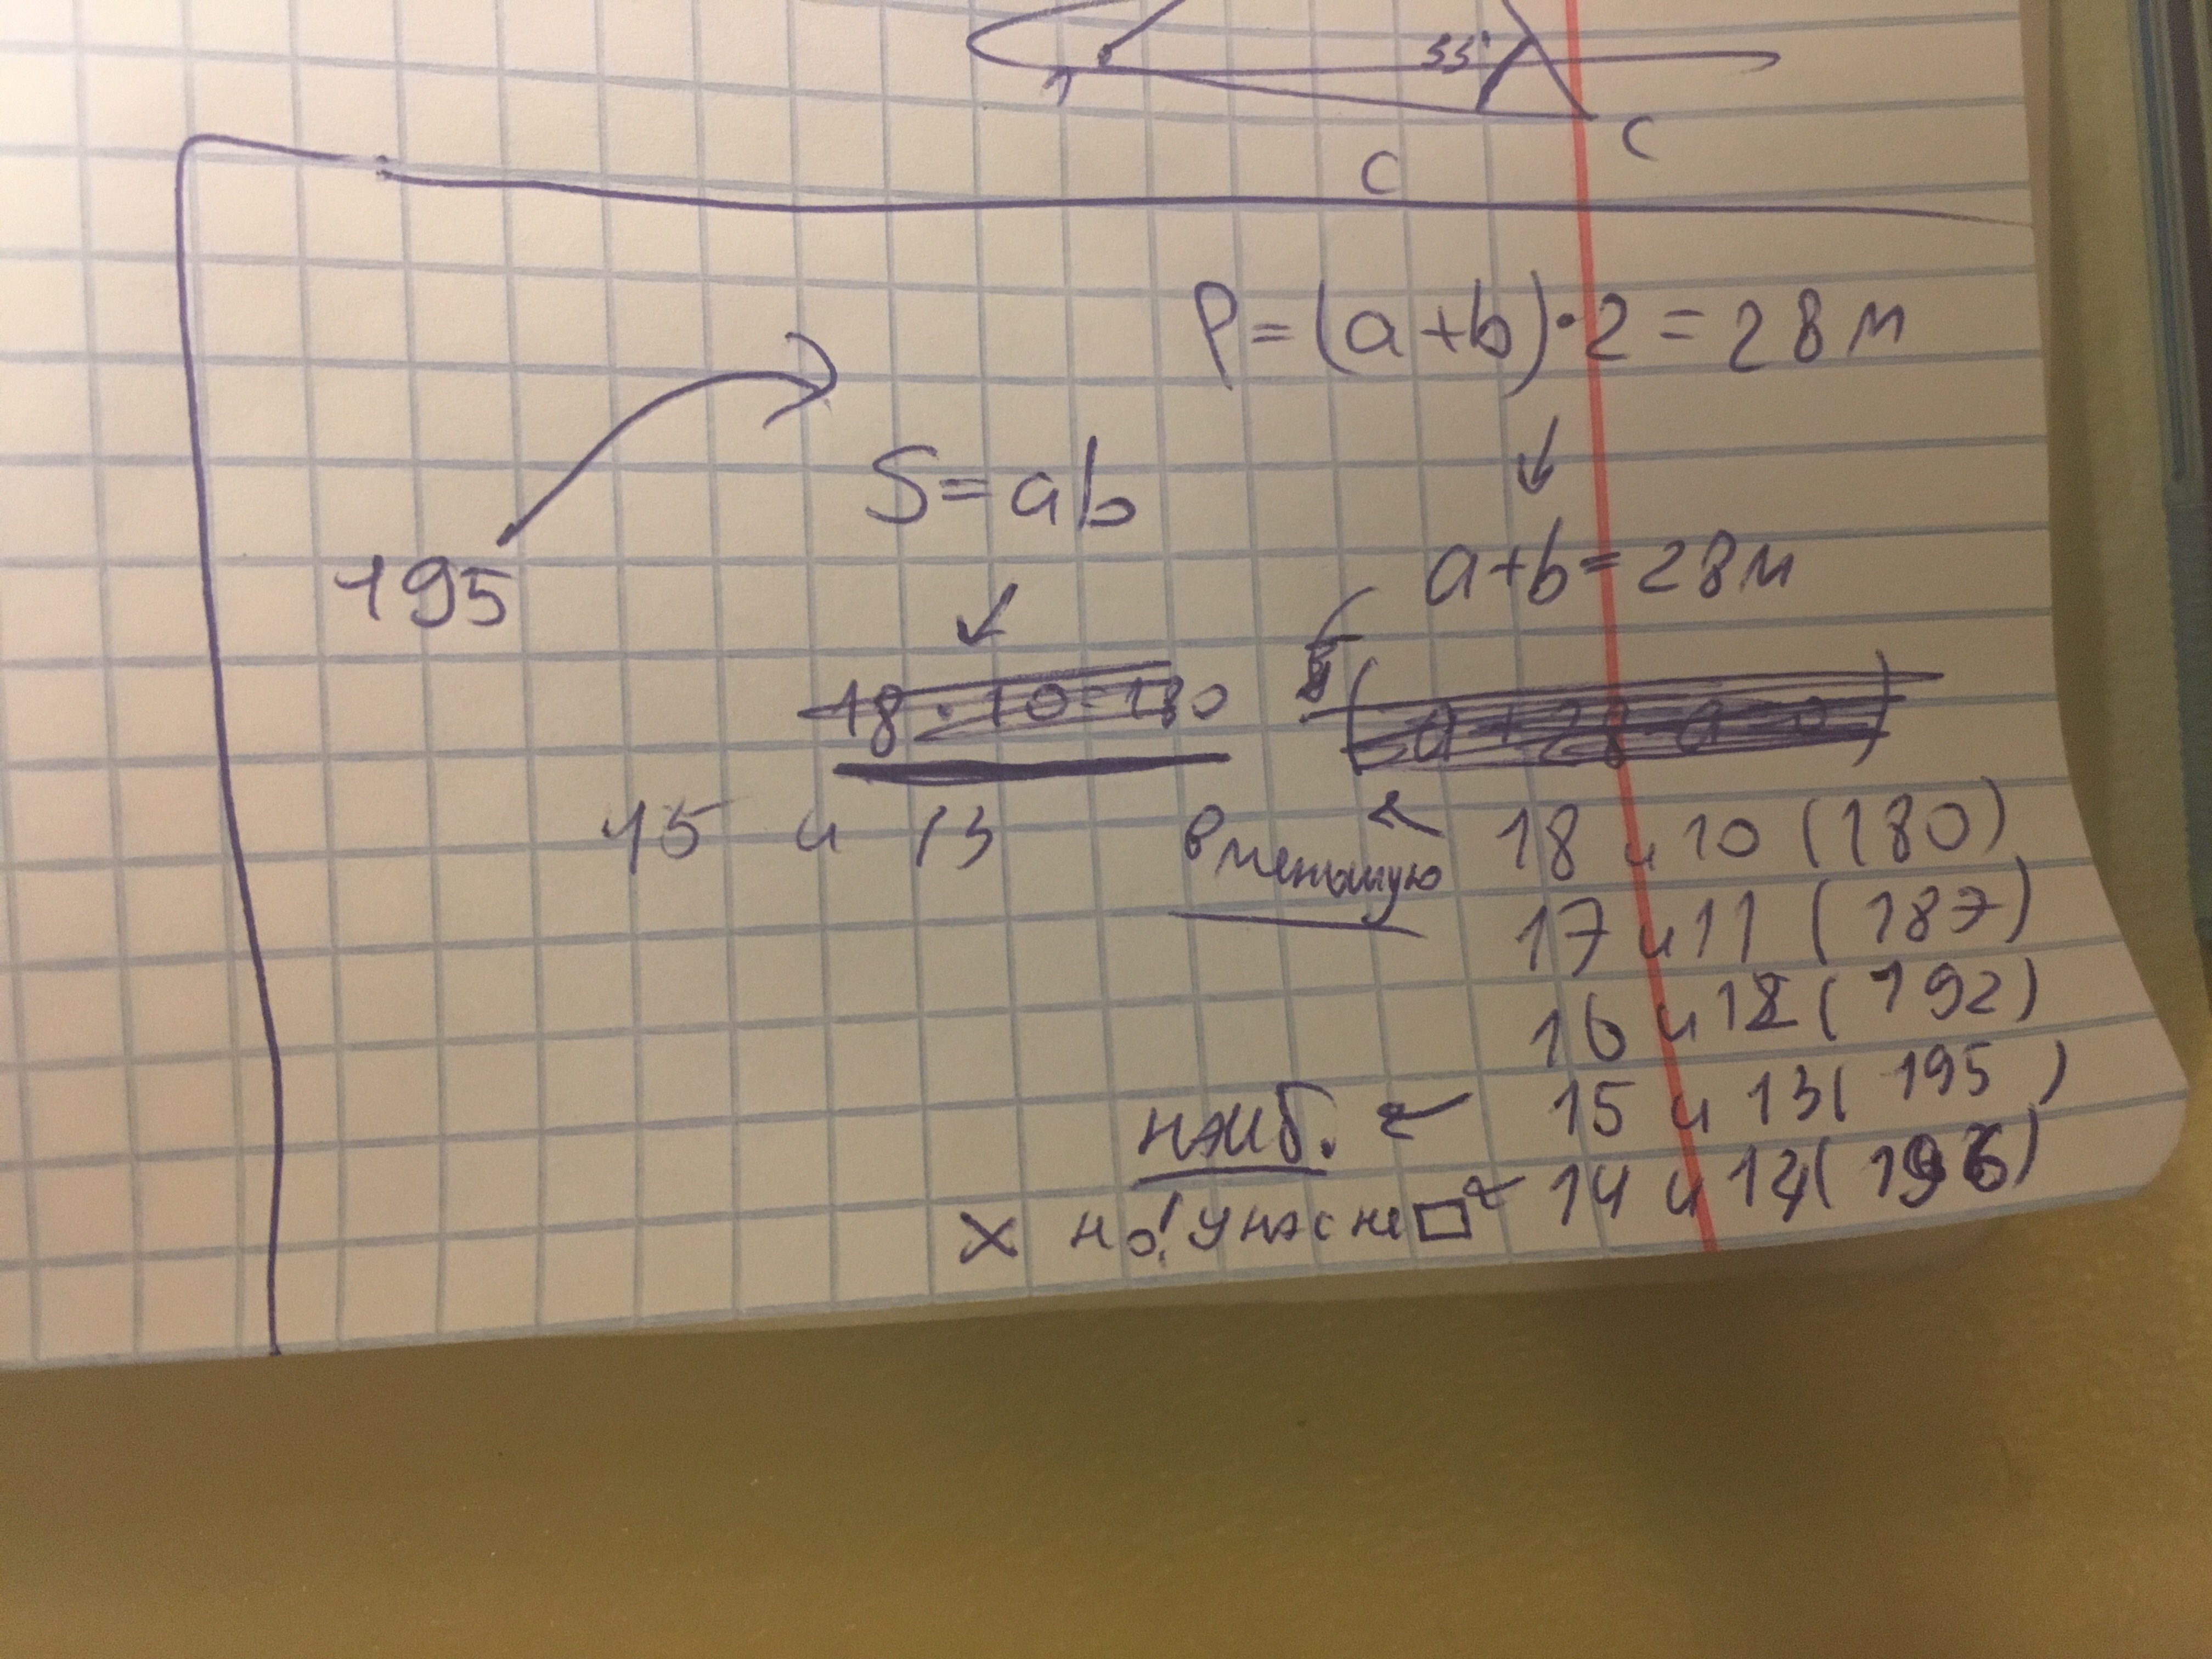 33°
C
C
P=(a+b)·2=28м
S=ab
195
a+b=28м
18·10=180
15 и 13
в меньшую
18 и 10 (180)
17 и 11 (187)
16 и 12 (192)
наиб. 15 и 13 (195)
но! у нас не □ 14 и 14 (196)